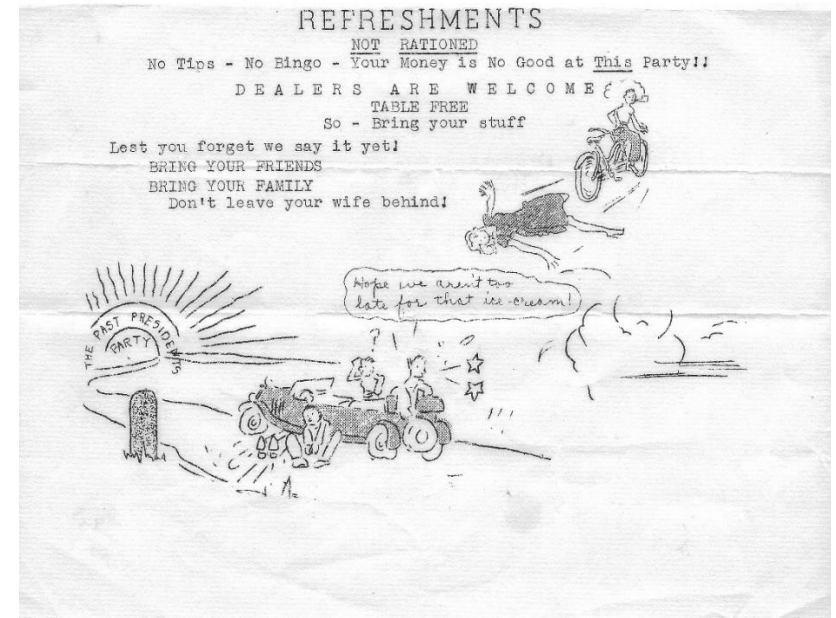 REFRESHMENTS
NOT RATIONED
No Tips - No Bingo - Your Money is No Good at This Party!!
DEALERS ARE WELCOME
TABLE FREE
So - Bring your stuff
Lest you forget we say it yet!
BRING YOUR FRIENDS
BRING YOUR FAMILY
Don't leave your wife behind!
Hope we aren't too
late for that ice-cream!
THE PAST PRESIDENTS
PARTY
?